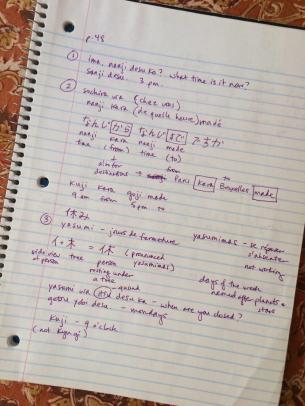 p.48
① ima nanji desu ka? what time is it now?
sanji desu. 3 pm.
② wa (chez vous)
nanji kara (de quelle heure) made
なんじ から なんじ まで ですか
nanji kara nanji made
time (from) time (to)
also for from to
destinations → Paris kara Bruxelles made
kuji kara goji made
9 am from 5 pm to
③ 休み
yasumi - jours de fermeture yasumimas - se reposer
s'absenter
イ+木 = 休 (pronounced
side view tree person yasumimas) not working
of person resting under
a tree days of the week
named after planets +
stars
yasumi wa desu ka - when are you closed?
getsu you desu - mondays
kuji = 9 o'clock
(not kyu ji)